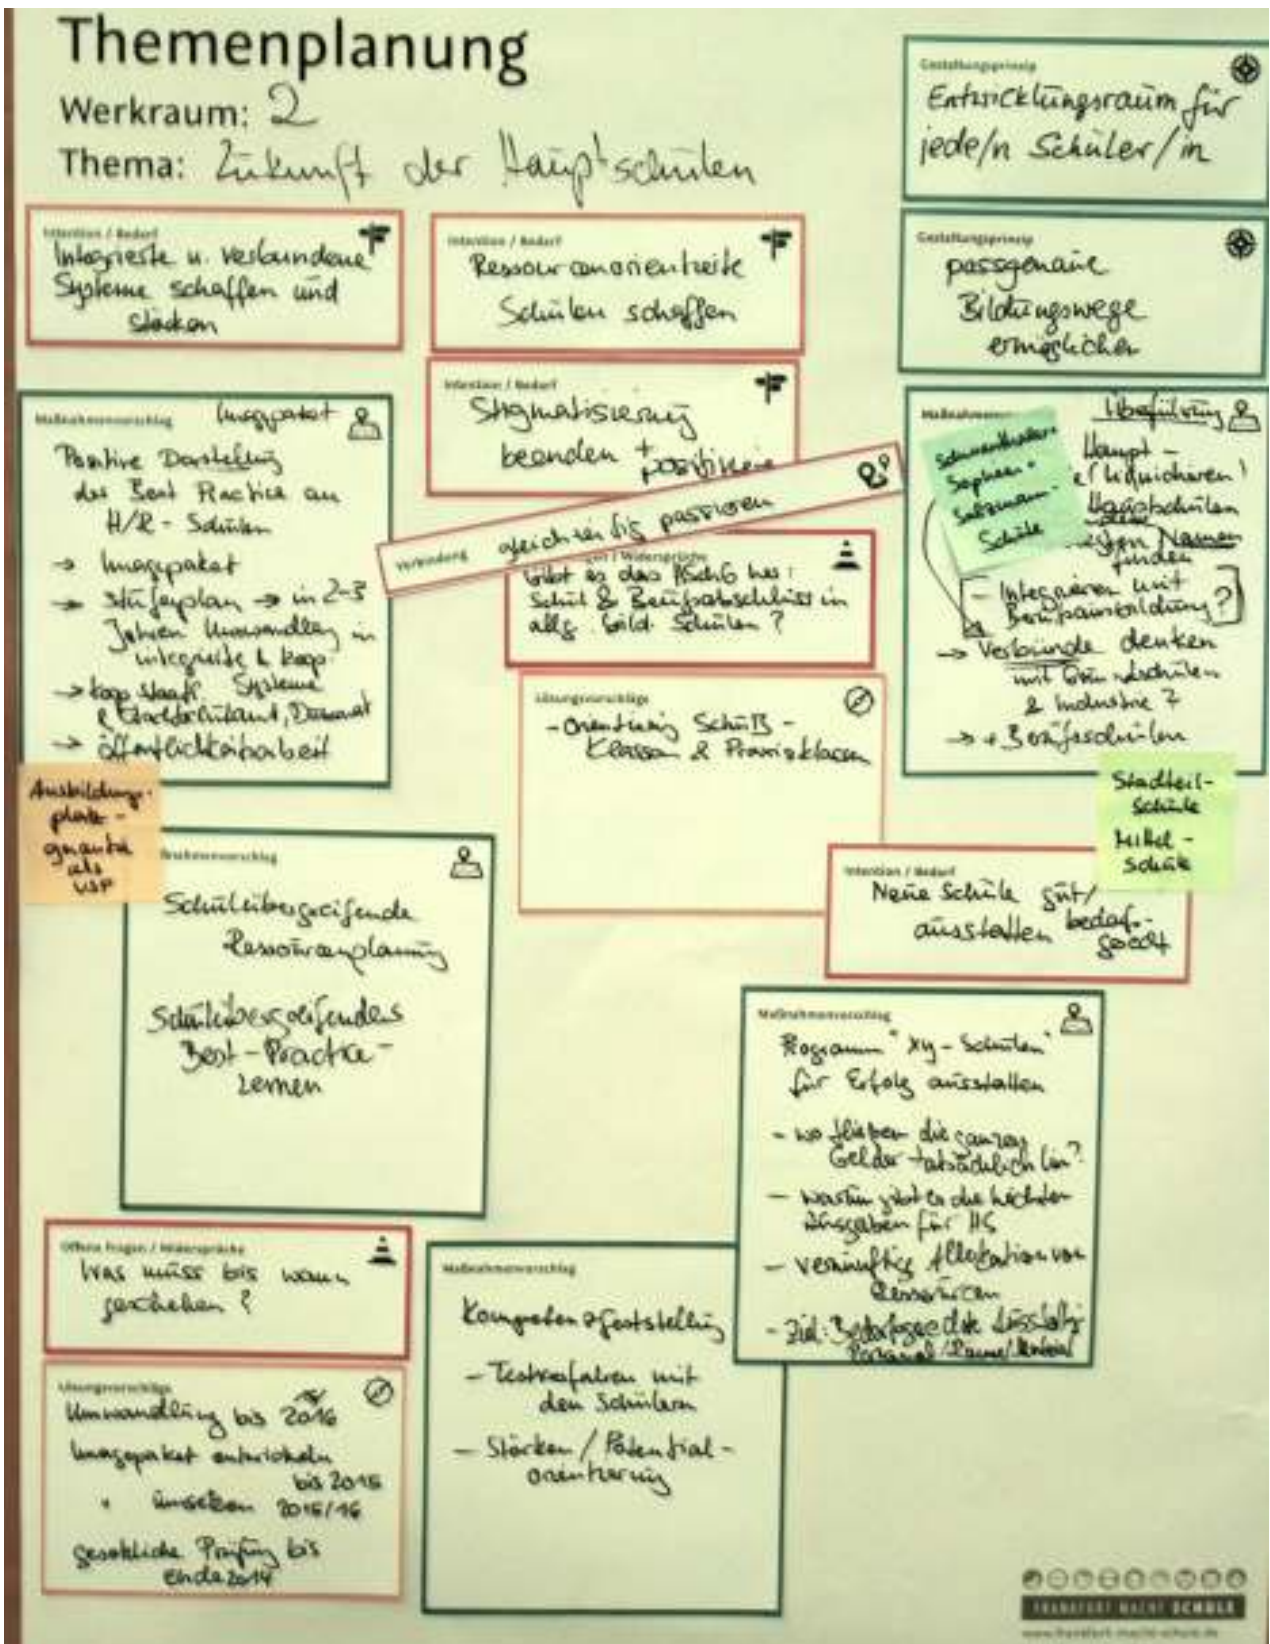 Themenplanung
Werkraum: 2
Thema: Zukunft der Hauptschulen
Gestaltungsprinzip
Entwicklungsraum für
jede/n Schüler/in
Intention / Bedarf
Integrierte u. verbundene
Systeme schaffen und
stärken
Intention / Bedarf
Ressourcenorientierte
Schulen schaffen
Gestaltungsprinzip
passgenaue
Bildungswege
ermöglichen
Intention / Bedarf
Stigmatisierung
beenden +
positivieren
Maßnahmenvorschlag
Imagepaket
Positive Darstellung
des Best Practice an
H/R - Schulen
→ Imagepaket
→ Stufenplan → in 2-3
Jahren Umwandlung in
integrierte & koop.
Systeme
→ koop. Staatl.
& Stadtschulamt, Dezernat
→ öffentlichkeitsarbeit
Ausbildungs-
platz-
garantie
als
USP
Verbindung
gleichzeitig passieren
/ Widersprüche
Gibt es das HSchG her:
Schul & Berufsabschluss in
allg. bild. Schulen?
Lösungsvorschläge
- Orientierung SchuB -
Klassen & Praxisklassen
Maßnahmen
Überführung
Haupt-
Hauptschulen
Namen
finden
- Integrieren mit
Berufsausbildung?
→ Verbünde denken
mit Grundschulen
& Industrie?
→ + Berufsschulen
Sophien-
Salzmann-
Schule
Stadtteil-
schule
Mittel-
schule
Intention / Bedarf
Neue Schule gut/
ausstatten bedarfs-
gerecht
Maßnahmenvorschlag
Schulübergreifende
Ressourcenplanung
Schulübergreifendes
Best-Practice-
Lernen
Maßnahmenvorschlag
Programm "xy-Schulen"
für Erfolg ausstatten
- wo fließen die ganzen
Gelder tatsächlich hin?
- warum gibt es die höchsten
Ausgaben für HS
- vernünftige Allokation von
Ressourcen
- Ziel: Bedarfsgerechte Ausstattg
Personal/Räume/
Offene Fragen / Widersprüche
Was muss bis wann
geschehen?
Lösungsvorschläge
Umwandlung bis 2016
Imagepaket entwickeln
bis 2015
" umsetzen 2015/16
gesetzliche Prüfung bis
Ende 2014
Maßnahmenvorschlag
Kompetenzfeststellung
- Testverfahren mit
den Schülern
- Stärken / Potential-
orientierung
FRANKFURT MACHT SCHULE
www.frankfurt-macht-schule.de